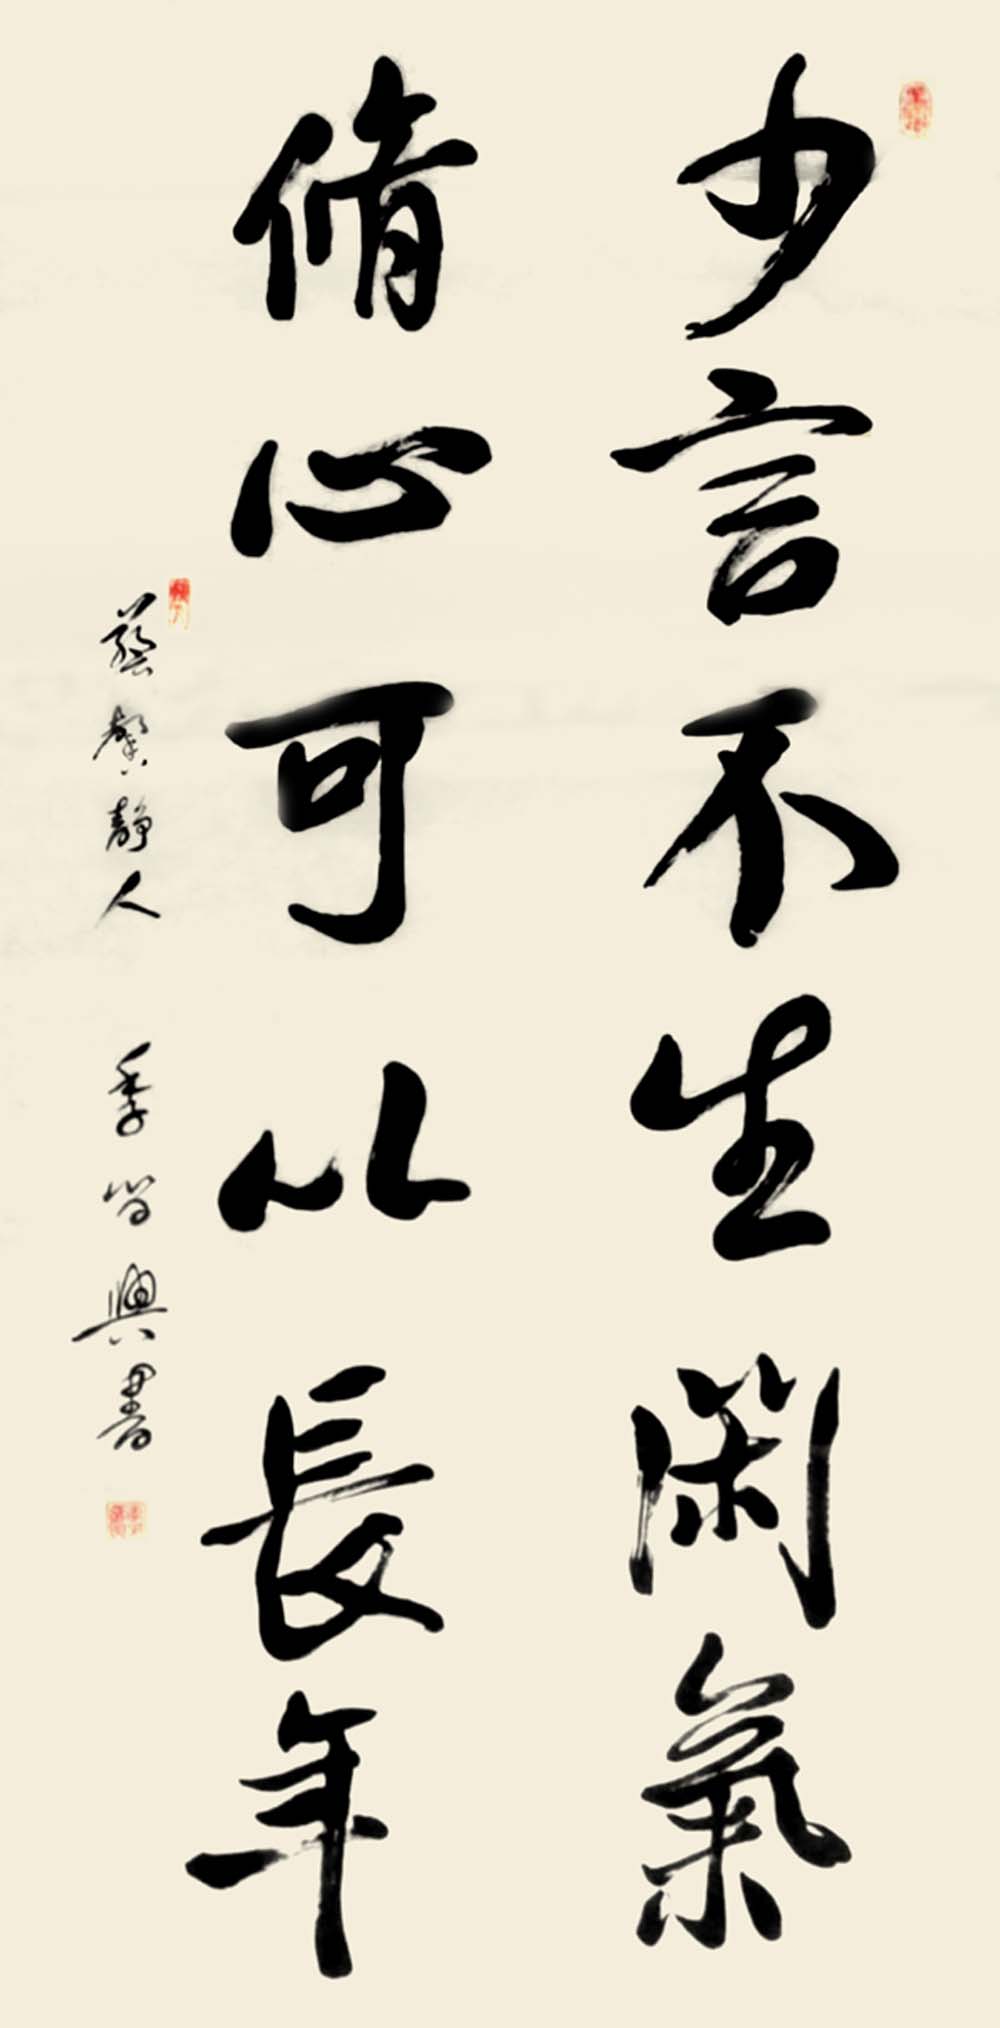 少言不生閑氣
脩心可以長年
藝馨靜人 季智興書